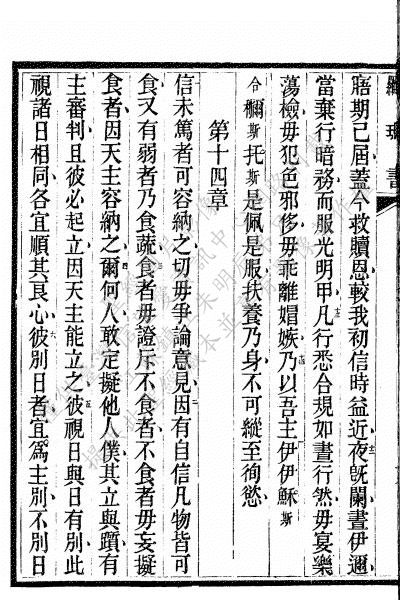 寤期已屆蓋今救贖恩較我初信時益近夜旣闌晝伊邇
當棄行暗務而服光明甲凡行悉合規如晝行然毋宴樂
蕩檢毋犯色邪侈毋乖離媢嫉乃以吾主伊伊穌斯
合爾斯托斯是佩是服扶養乃身不可縱至徇慾
第十四章
信未篤者可容納之切毋爭論意見因有自信凡物皆可
食又有弱者乃食蔬食者毋證斥不食者不食者毋妄擬
食者因天主容納之爾何人敢定擬他人僕其立與躓有
主審判且彼必起立因天主能立之彼視日與日有別此
視諸日相同各宜順其良心彼別日者宜爲主別不別日